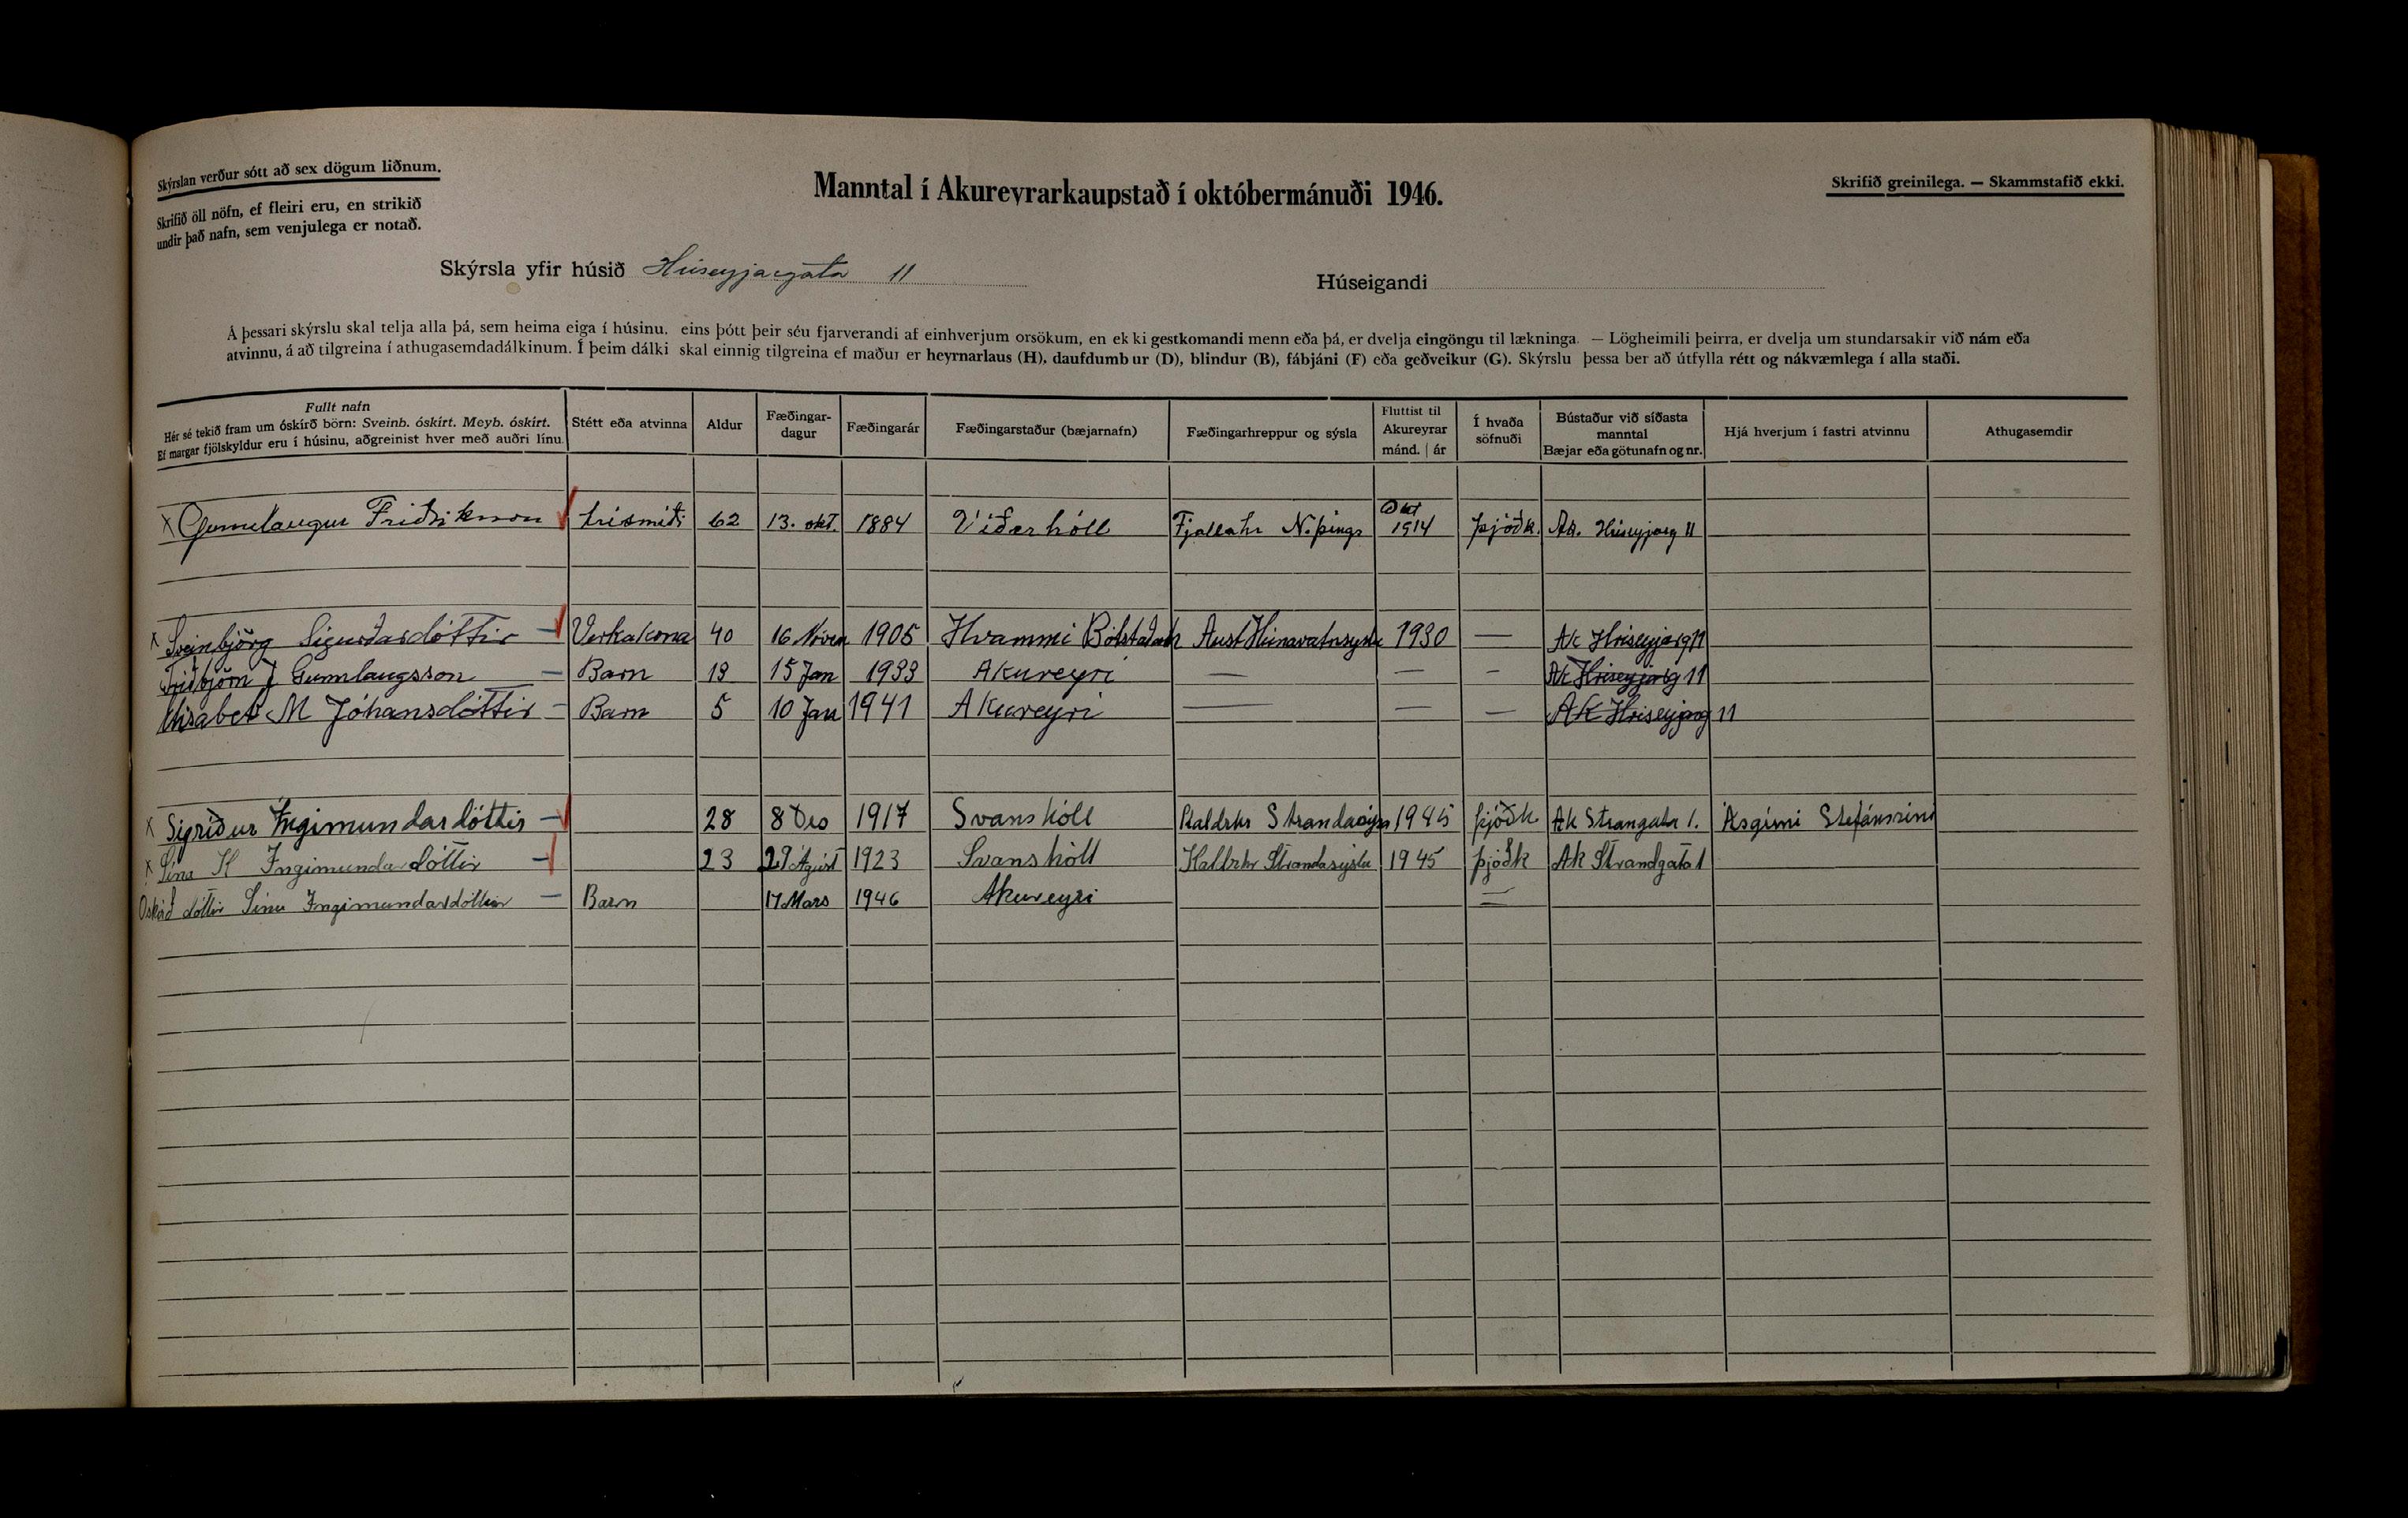 Skýrslan verður sótt að sex dögum liðnum.
Skrifið öll nöfn, ef fleiri eru, en strikið
undir það nafn, sem venjulega er notað.
Manntal í Akureyrarkaupstað í októbermánuði 1946.
Skrifið greinilega. — Skammstafið ekki.
Skýrsla yfir húsið Hríseyjargata 11
Húseigandi
Á þessari skýrslu skal telja alla þá, sem heima eiga í húsinu, eins þótt þeir séu fjarverandi af einhverjum orsökum, en ekki gestkomandi menn eða þá, er dvelja eingöngu til lækninga. — Lögheimili þeirra, er dvelja um stundarsakir við nám eða
atvinnu, á að tilgreina í athugasemdadálkinum. Í þeim dálki skal einnig tilgreina ef maður er heyrnarlaus (H), daufdumbur (D), blindur (B), fábjáni (F) eða geðveikur (G). Skýrslu þessa ber að útfylla rétt og nákvæmlega í alla staði.
Fullt nafn
Hér sé tekið fram um óskírð börn: Sveinb. óskírt. Meyb. óskírt.
Ef margar fjölskyldur eru í húsinu, aðgreinist hver með auðri línu.
Stétt eða atvinna
Aldur
Fæðingar-
dagur
Fæðingarár
Fæðingarstaður (bæjarnafn)
Fæðingarhreppur og sýsla
Fluttist til
Akureyrar
mánd. | ár
Í hvaða
söfnuði
Bústaður við síðasta
manntal
Bæjar eða götunafn og nr.
Hjá hverjum í fastri atvinnu
Athugasemdir
x Gunnlaugur Friðriksson trésmiði 62 13. okt. 1884 Víðerhóll Fjallahr N.þings Okt 1914 þjóðk. Ak. Hríseyjarg 11
x Sveinbjörg Sigurðardóttir — Verkakona 40 16 Nóvem 1905 Hvammi Bólstaðarh Aust Húnavatnsýslu 1930 — Ak Hríseyjarg 11
Friðbjörn J Gunnlaugsson — Barn 13 15 Jan 1933 Akureyri — — — Ak Hríseyjarg 11
Elísabet M Jóhansdóttir — Barn 5 10 Jan 1941 Akureyri — — — AK Hríseyjarg 11
x Sigríður Ingimundardóttir — 28 8 Des 1917 Svanshóll Kaldrhr Strandasýs 1945 þjóðk Ak Strangata 1. Ásgími Stefánssini
x Sína K Ingimundardóttir — 23 29 Ágúst 1923 Svanshóll Kaldrhr Strandasýslu 1945 þjóðk Ak Strandgata 1
Óskírð dóttir Sínu Ingimundardóttur — Barn 17 Mars 1946 Akureyri =